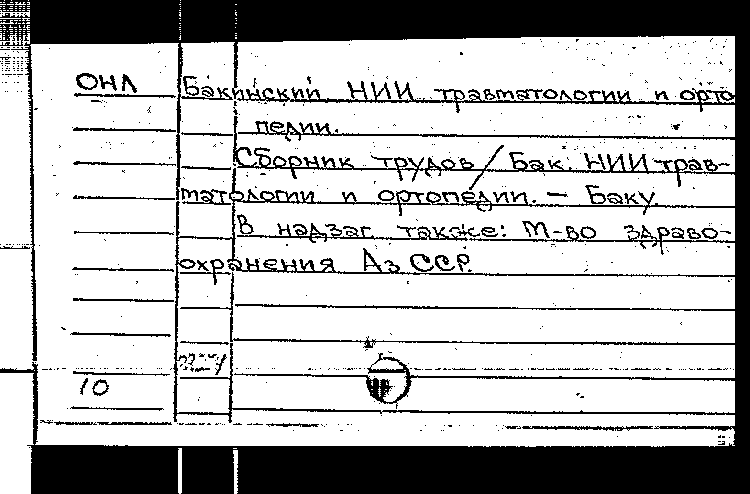 ОНЛ
Бакинский НИИ травматологии и орто
педии.
Сборник трудов / Бак. НИИ трав-
матологии и ортопедии. — Баку.
В надзаг. также: М-во здраво-
охранения АзССР.
10